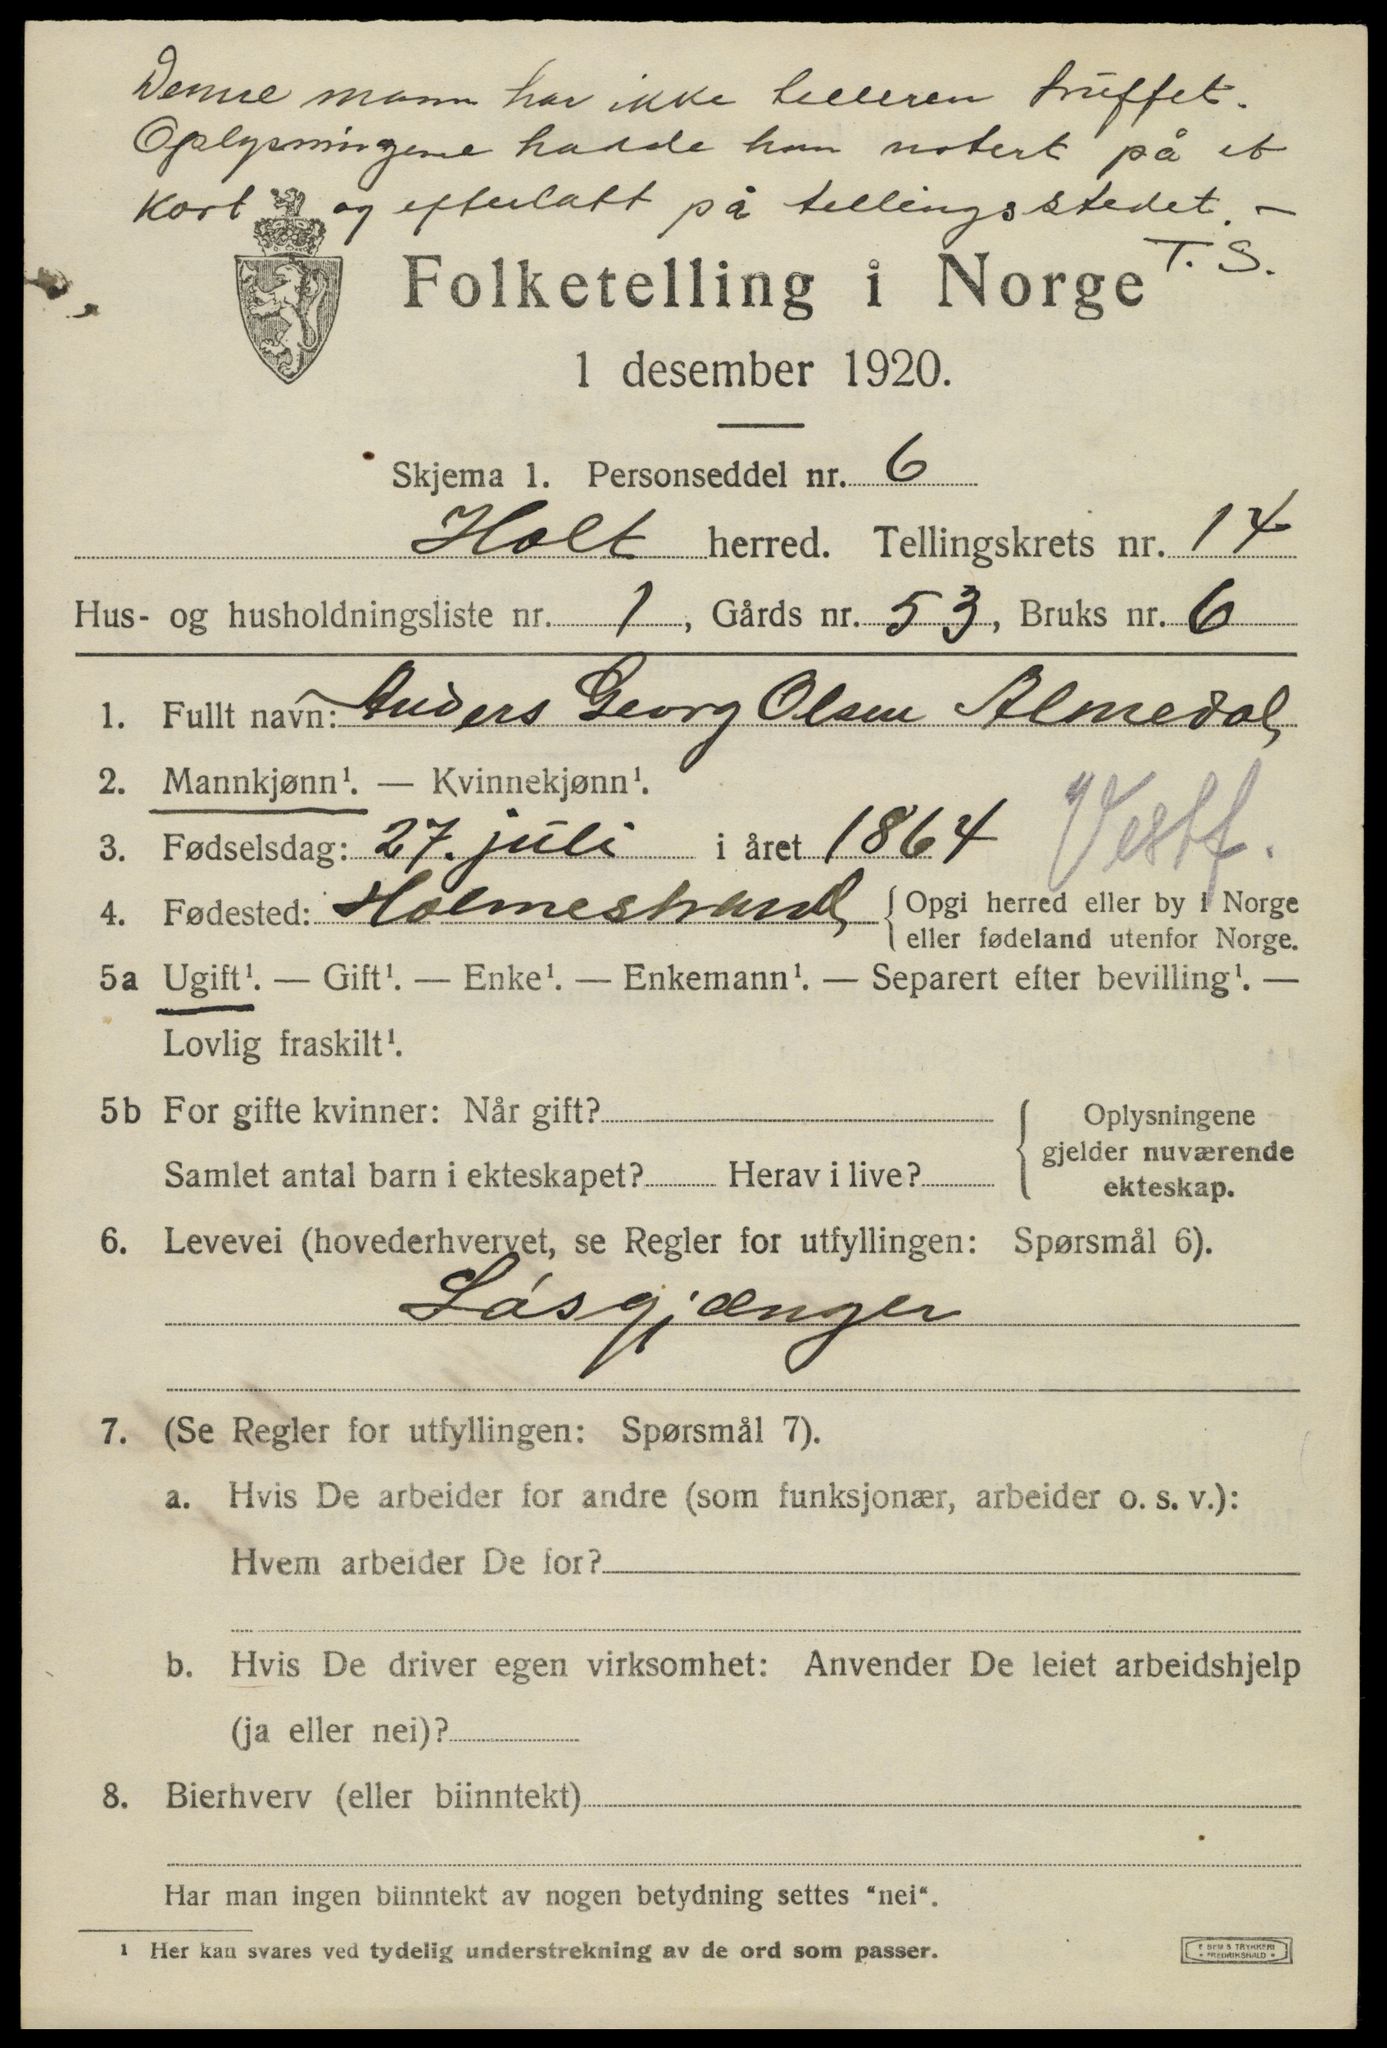 Denne mann har ikke telleren truffet.
Oplysningene hadde han notert på et
kort og efterlatt på tellingsstedet. –
T. S.
Folketelling i Norge
1 desember 1920.
Skjema 1. Personseddel nr. 6
Holt herred. Tellingskrets nr. 14
Hus- og husholdningsliste nr. 1, Gårds nr. 53, Bruks nr. 6
1. Fullt navn: Anders Georg Olsen Almedal
2. Mannkjønn¹. — Kvinnekjønn¹.
Vestf.
3. Fødselsdag: 27. juli i året 1864
4. Fødested: Holmestrand { Opgi herred eller by i Norge
eller fødeland utenfor Norge.
5a Ugift¹. — Gift¹. — Enke¹. — Enkemann¹. — Separert efter bevilling¹. —
Lovlig fraskilt¹.
5b For gifte kvinner: Når gift?
Samlet antal barn i ekteskapet? Herav i live?
{ Oplysningene
gjelder nuværende
ekteskap.
6. Levevei (hovederhvervet, se Regler for utfyllingen: Spørsmål 6).
Løsgjænger
7. (Se Regler for utfyllingen: Spørsmål 7).
a. Hvis De arbeider for andre (som funksjonær, arbeider o. s. v.):
Hvem arbeider De for?
b. Hvis De driver egen virksomhet: Anvender De leiet arbeidshjelp
(ja eller nei)?
8. Bierhverv (eller biinntekt)
Har man ingen biinntekt av nogen betydning settes "nei".
¹ Her kan svares ved tydelig understrekning av de ord som passer.
TRYKKERI
FREDRIKSHALD